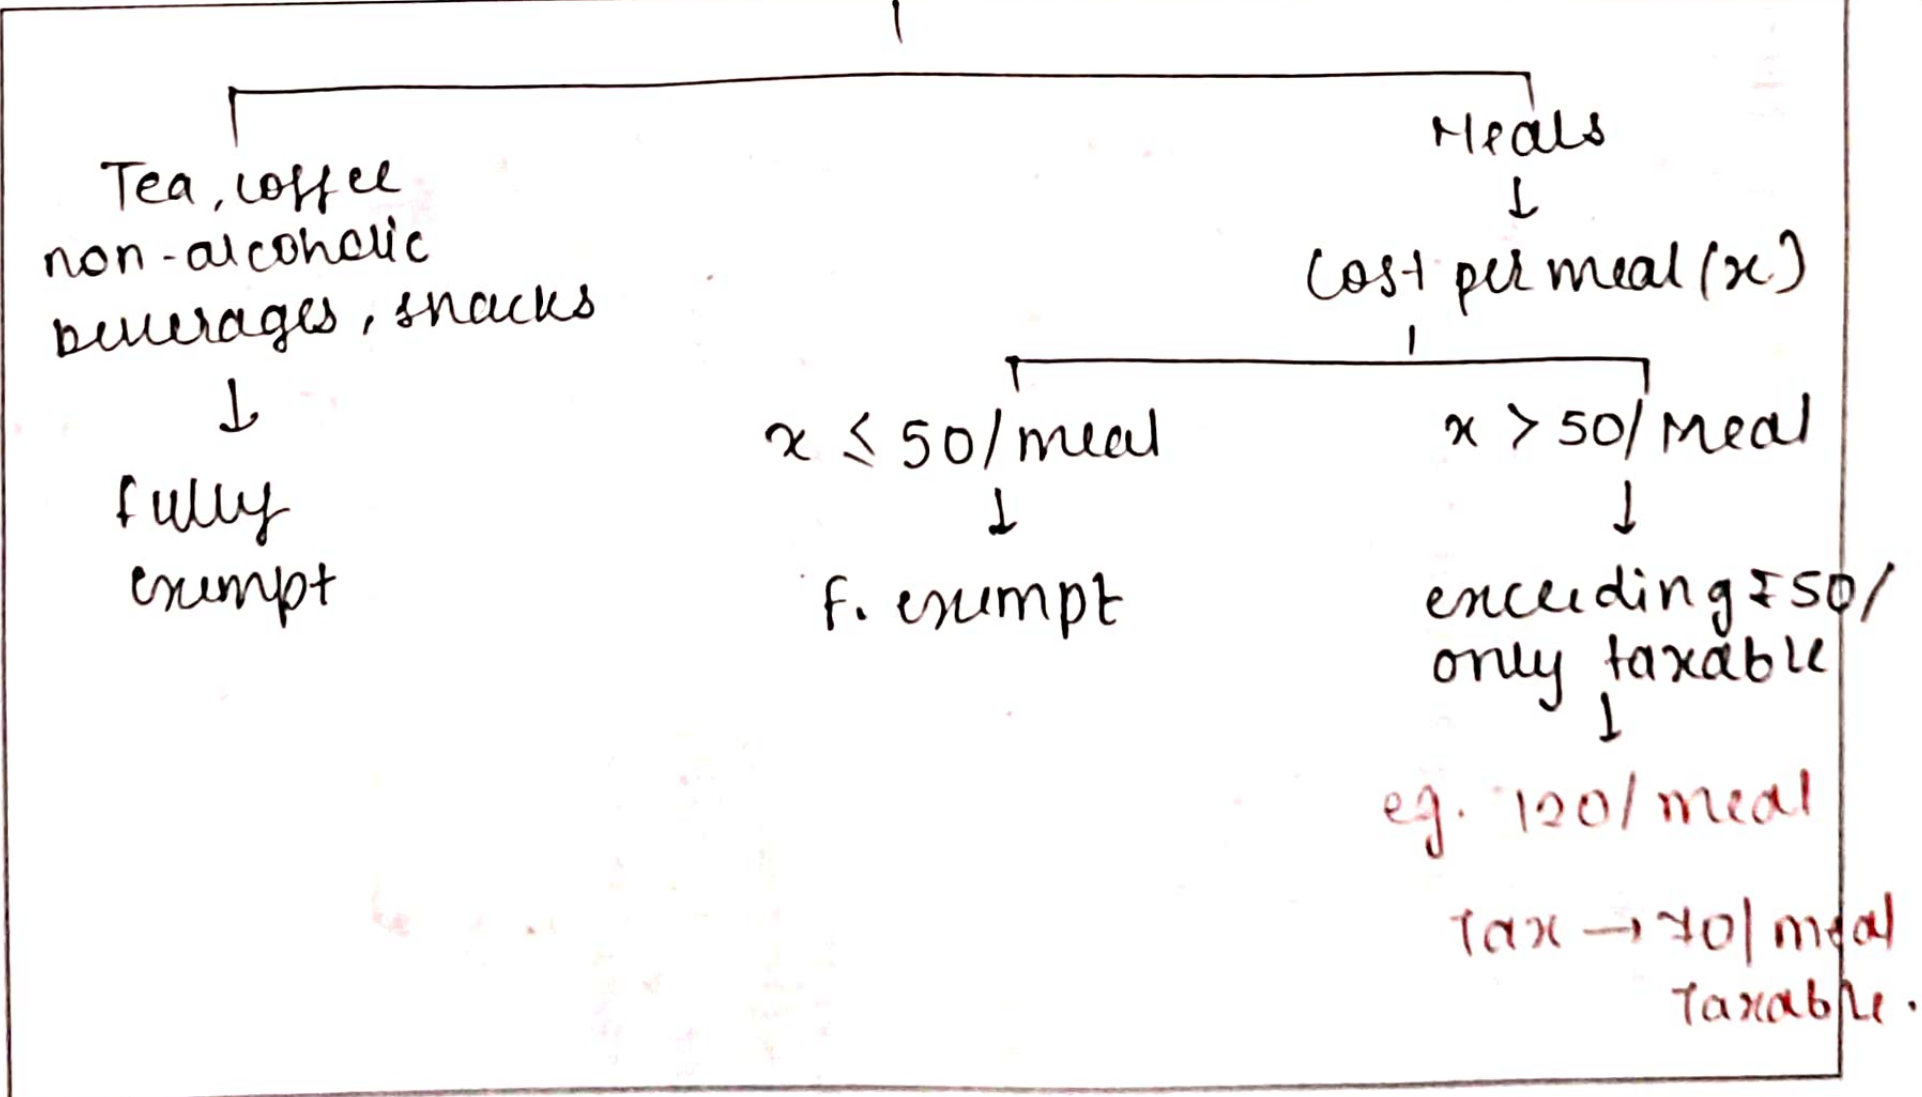 Tea, coffee
non-alcoholic
beverages, snacks
↓
fully
exempt
Meals
↓
Cost per meal (x)
x ≤ 50/meal
↓
F. exempt
x > 50/Meal
↓
exceeding ₹50/
only taxable
↓
eg. 120/meal
Tax → 70/meal
Taxable.